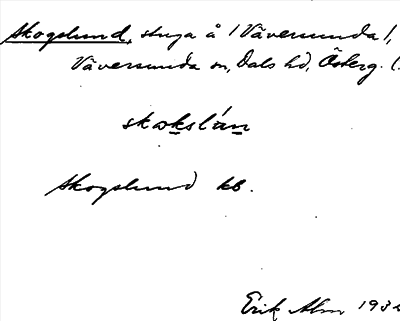 Skogslund, stuga å /Väversunda/,
Väversunda sn, Dals hd, Österg. l.
skokslán
Skogslund kb.
Erik Alm 193